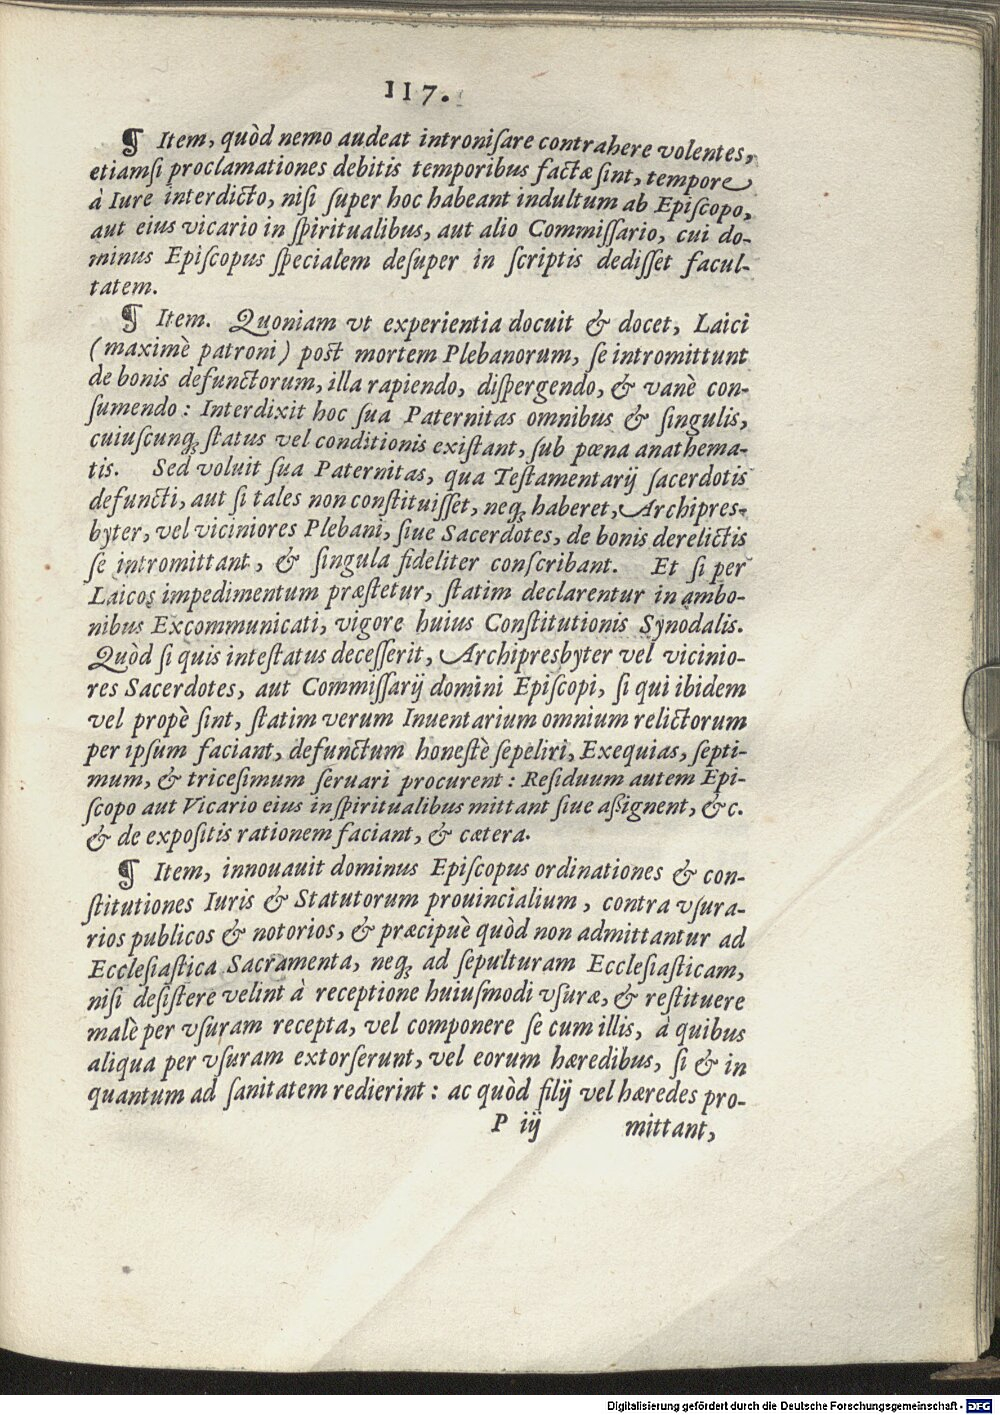 117.
¶ Item, quòd nemo audeat intronisare contrahere volentes,
etiamsi proclamationes debitis temporibus factæ sint, tempore
à Iure interdicto, nisi super hoc habeant indultum ab Episcopo,
aut eius vicario in spiritualibus, aut alio Commissario, cui do-
minus Episcopus specialem desuper in scriptis dedisset facul-
tatem.
¶ Item. Quoniam vt experientia docuit & docet, Laici
(maximè patroni) post mortem Plebanorum, se intromittunt
de bonis defunctorum, illa rapiendo, dispergendo, & vanè con-
sumendo: Interdixit hoc sua Paternitas omnibus & singulis,
cuiuscunq; status vel conditionis existant, sub pœna anathema-
tis. Sed voluit sua Paternitas, qua Testamentarij sacerdotis
defuncti, aut si tales non constituisset, neq; haberet, Archipres-
byter, vel viciniores Plebani, siue Sacerdotes, de bonis derelictis
se intromittant, & singula fideliter conscribant. Et si per
Laicos impedimentum præstetur, statim declarentur in ambo-
nibus Excommunicati, vigore huius Constitutionis Synodalis.
Quòd si quis intestatus decesserit, Archipresbyter vel vicinio-
res Sacerdotes, aut Commissarij domini Episcopi, si qui ibidem
vel propè sint, statim verum Inuentarium omnium relictorum
per ipsum faciant, defunctum honestè sepeliri, Exequias, septi-
mum, & tricesimum seruari procurent: Residuum autem Epi-
scopo aut Vicario eius in spiritualibus mittant siue assignent, &c.
& de expositis rationem faciant, & cætera.
¶ Item, innouauit dominus Episcopus ordinationes & con-
stitutiones Iuris & Statutorum prouincialium, contra vsura-
rios publicos & notorios, & præcipuè quòd non admittantur ad
Ecclesiastica Sacramenta, neq; ad sepulturam Ecclesiasticam,
nisi desistere velint à receptione huiusmodi vsuræ, & restituere
malè per vsuram recepta, vel componere se cum illis, à quibus
aliqua per vsuram extorserunt, vel eorum hæredibus, si & in
quantum ad sanitatem redierint: ac quòd filij vel hæredes pro-
P iij mittant,
Digitalisierung gefördert durch die Deutsche Forschungsgemeinschaft - DFG